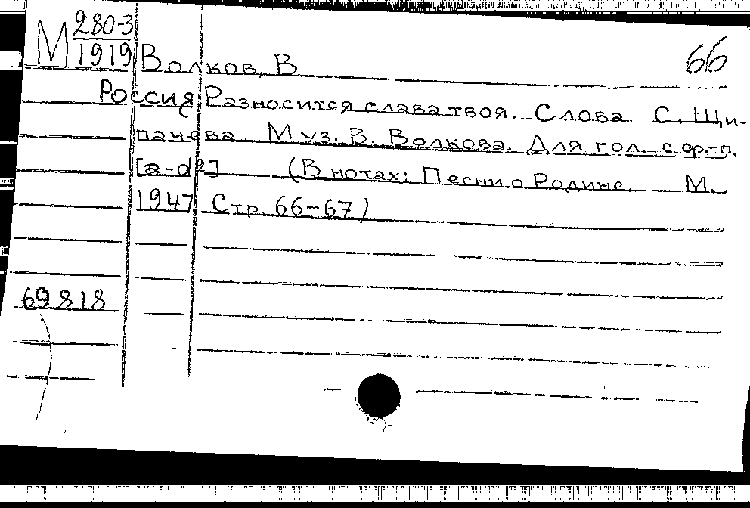 М 280-3
1919
66
Волков, В
Россия Разносится слава твоя. Слова С. Щи-
пачева. Муз. В. Волкова. Для гол. с ф-п.
[a-d2] (В нотах: Песни о Родине. М.
1947 Стр. 66-67)
69818